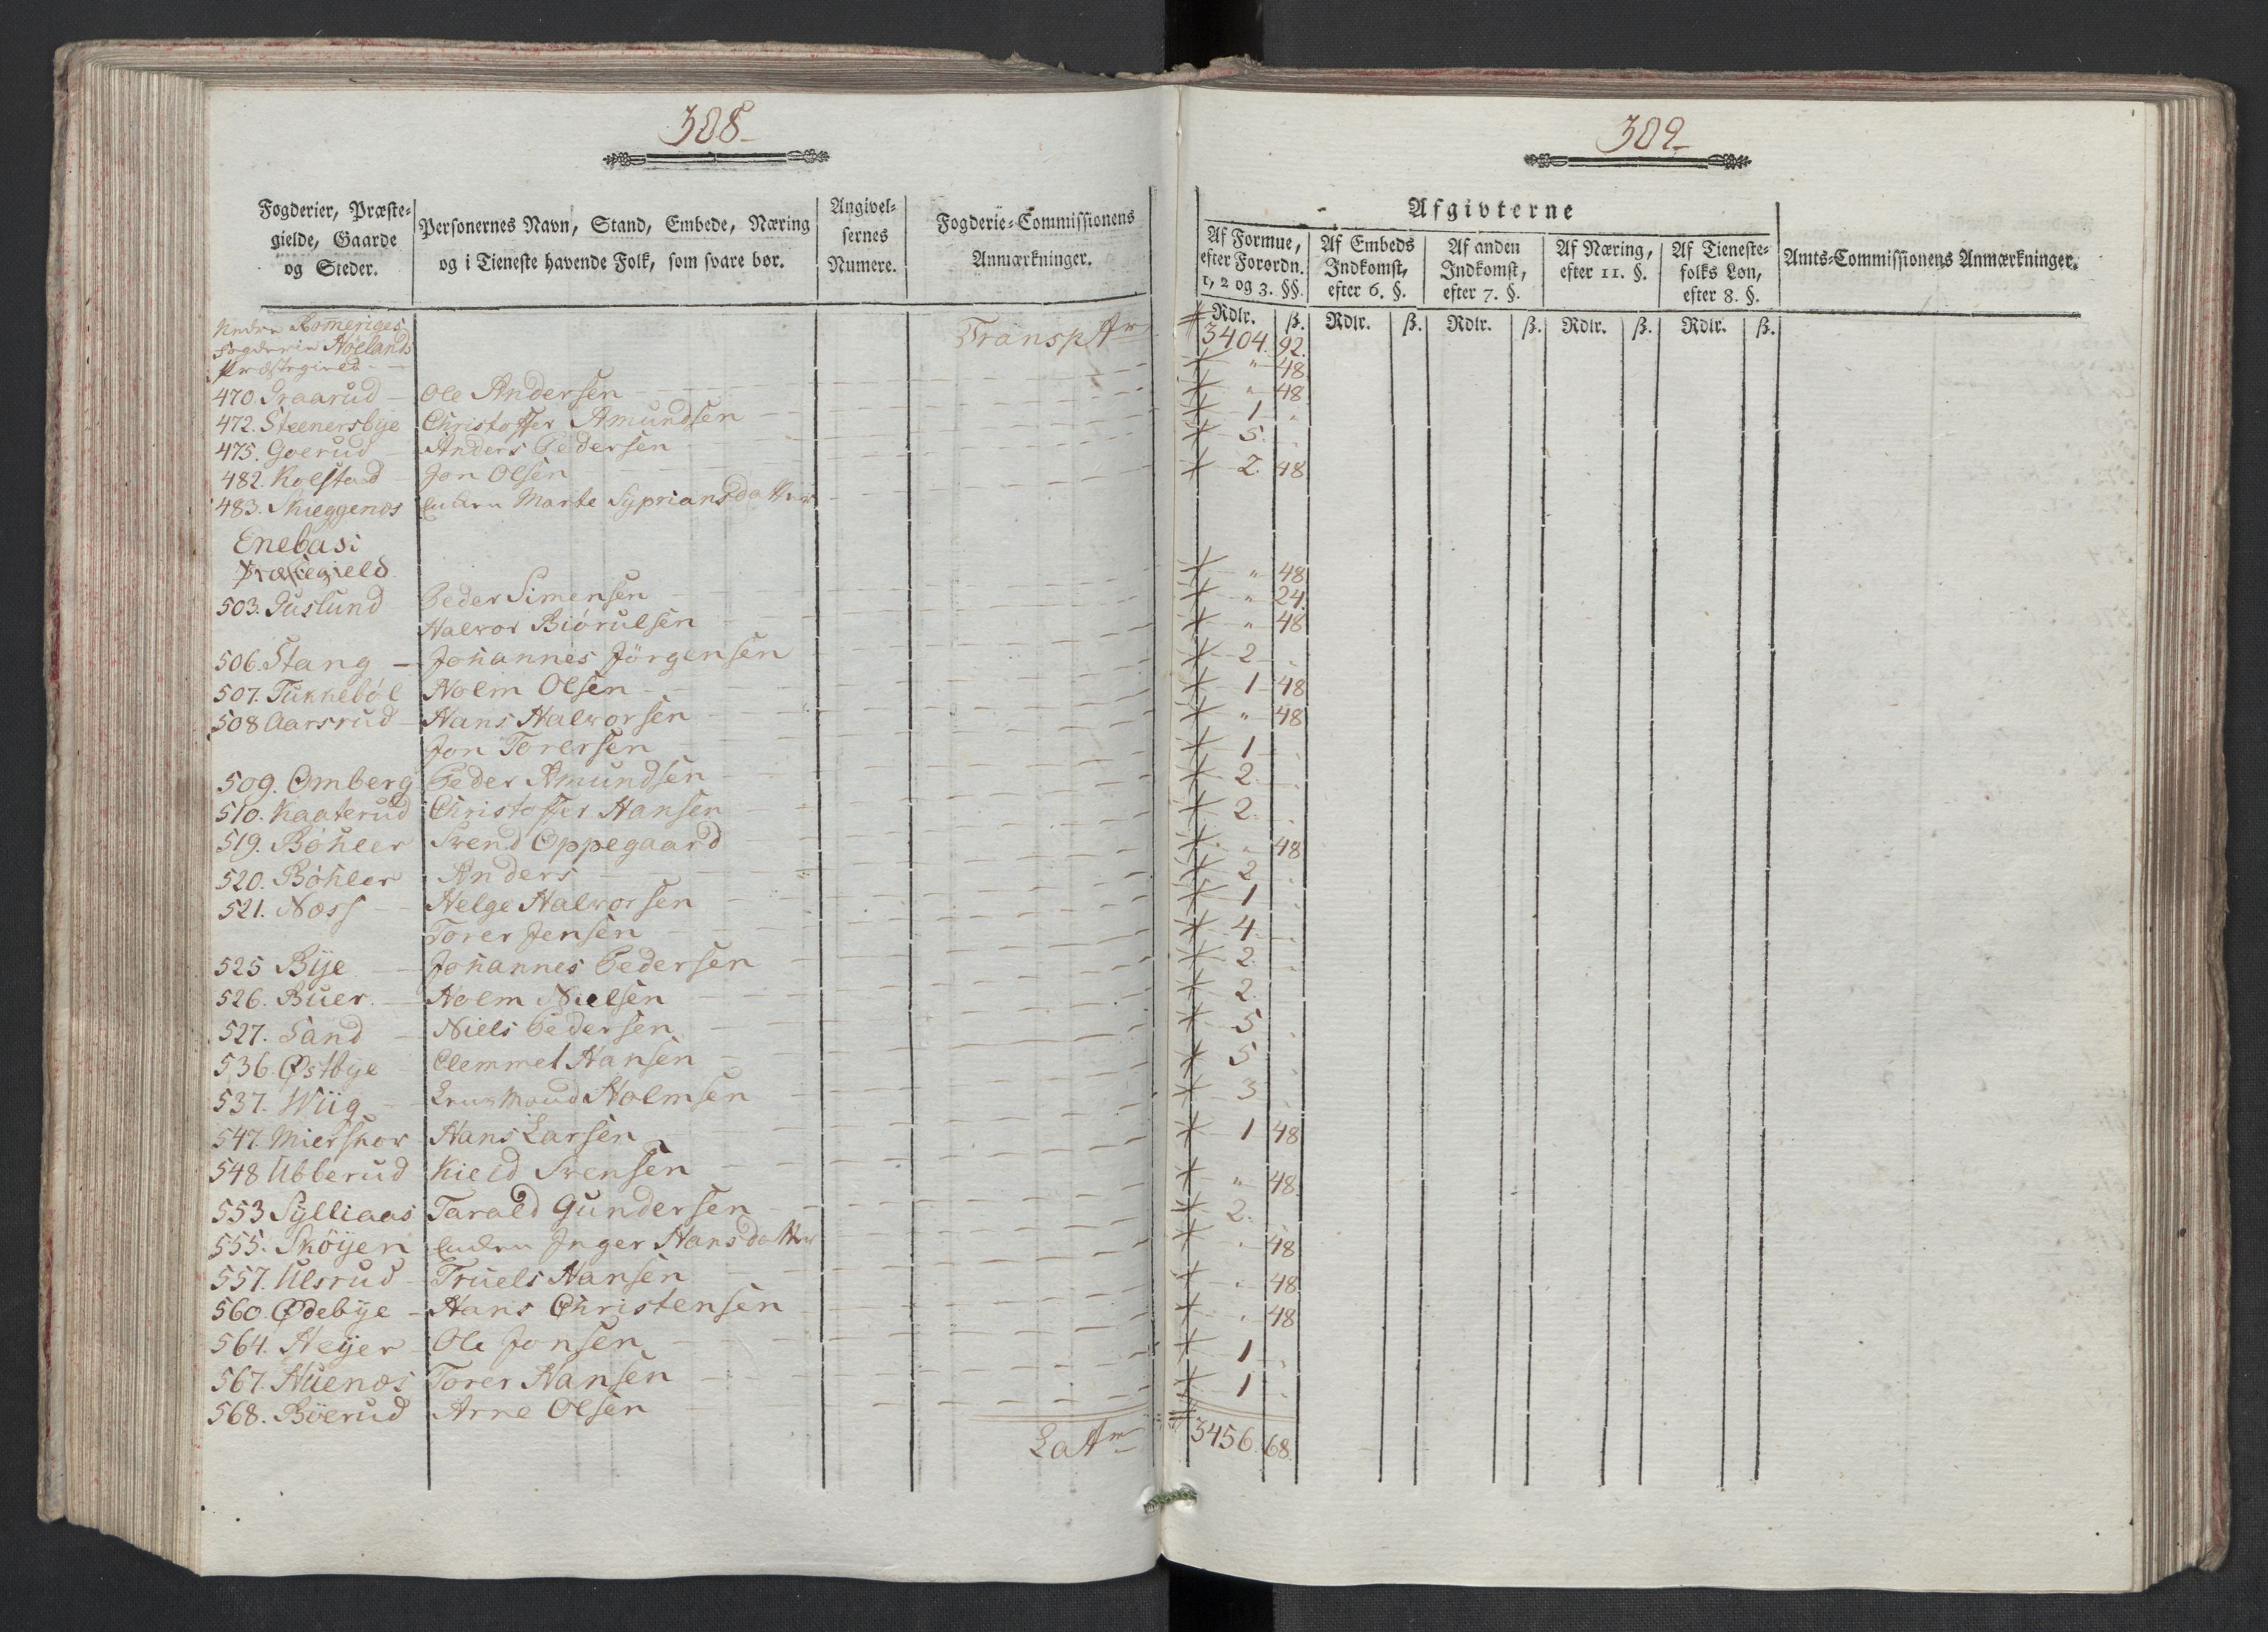 308
Fogderier, Præste-
gielde, Gaarde
og Steder.
Personernes Navn, Stand, Embede, Næring
og i Tieneste havende Folk, som svare bør.
Angivel-
sernes
Numere.
Fogderie-Commissionens
Anmærkninger.
Nedre Romeriges
Fogderie Høelands
Præstegield Transp
470. Graarud Ole Andersen
472. Steenersbye Christoffer Amundsen
475. Goerud Anders Pedersen
482. Kolstad Jon Olsen
483. Skieggenes Enken Marte Sypriansdatter
Enebasi
Præstegield
503. Peder Simensen
Halvor Biörulsen
506. Stang Johannes Jörgensen
507. Tukkeböl Holm Olsen
508 Aarsrud Hans Halvorsen
Jon Torersen
509. Omberg Peder Amundsen
510. Kaaterud Christoffer Hansen
519. Böhler Svend Oppegaard
520. Böhler Anders
521. Næss Helge Halvorsen
Torer Jensen
525 Bye Johannes Pedersen
526. Buer. Holm Nielsen
527. Sand Niels Pedersen
536. Østbye Clemmet Hansen
537. Wiig Holmsen
547. Mierskov Hans Larsen
548 Ubberud Kield Svensen
553 Sylliaas Tarald Gundersen
555. Sköyen Enken Inger Hansdatter
557. Ulsrud Truels Hansen
560. Ødebye Hans Christensen
564. Heyer Ole Jonsen
567. Huenes Torer Hansen
568. Böerud Arne Olsen
309
Afgivterne
Af Formue,
efter Forordn.
1, 2 og 3. §§.
Af Embeds
Indkomst,
efter 6. §.
Af anden
Indkomst,
efter 7. §.
Af Næring,
efter 11. §.
Af Tieneste-
folks Løn,
efter 8. §.
Amts-Commissionens Anmærkninger.
Rdlr. ß. Rdlr. ß. Rdlr. ß. Rdlr. ß. Rdlr. ß.
3404. 92.
" 48
" 48
1 "
5.
2. 48
" 48
" 24.
" 48
2
1 48
" 48
1
2.
2.
" 48
2
1
4
2.
2.
5
5
3
1 48
" 48.
2.
" 48
" 48
" 48
1
1
3456. 68.